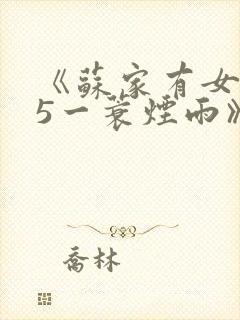 《蘇家有女
5一蓑煙雨》
喬林